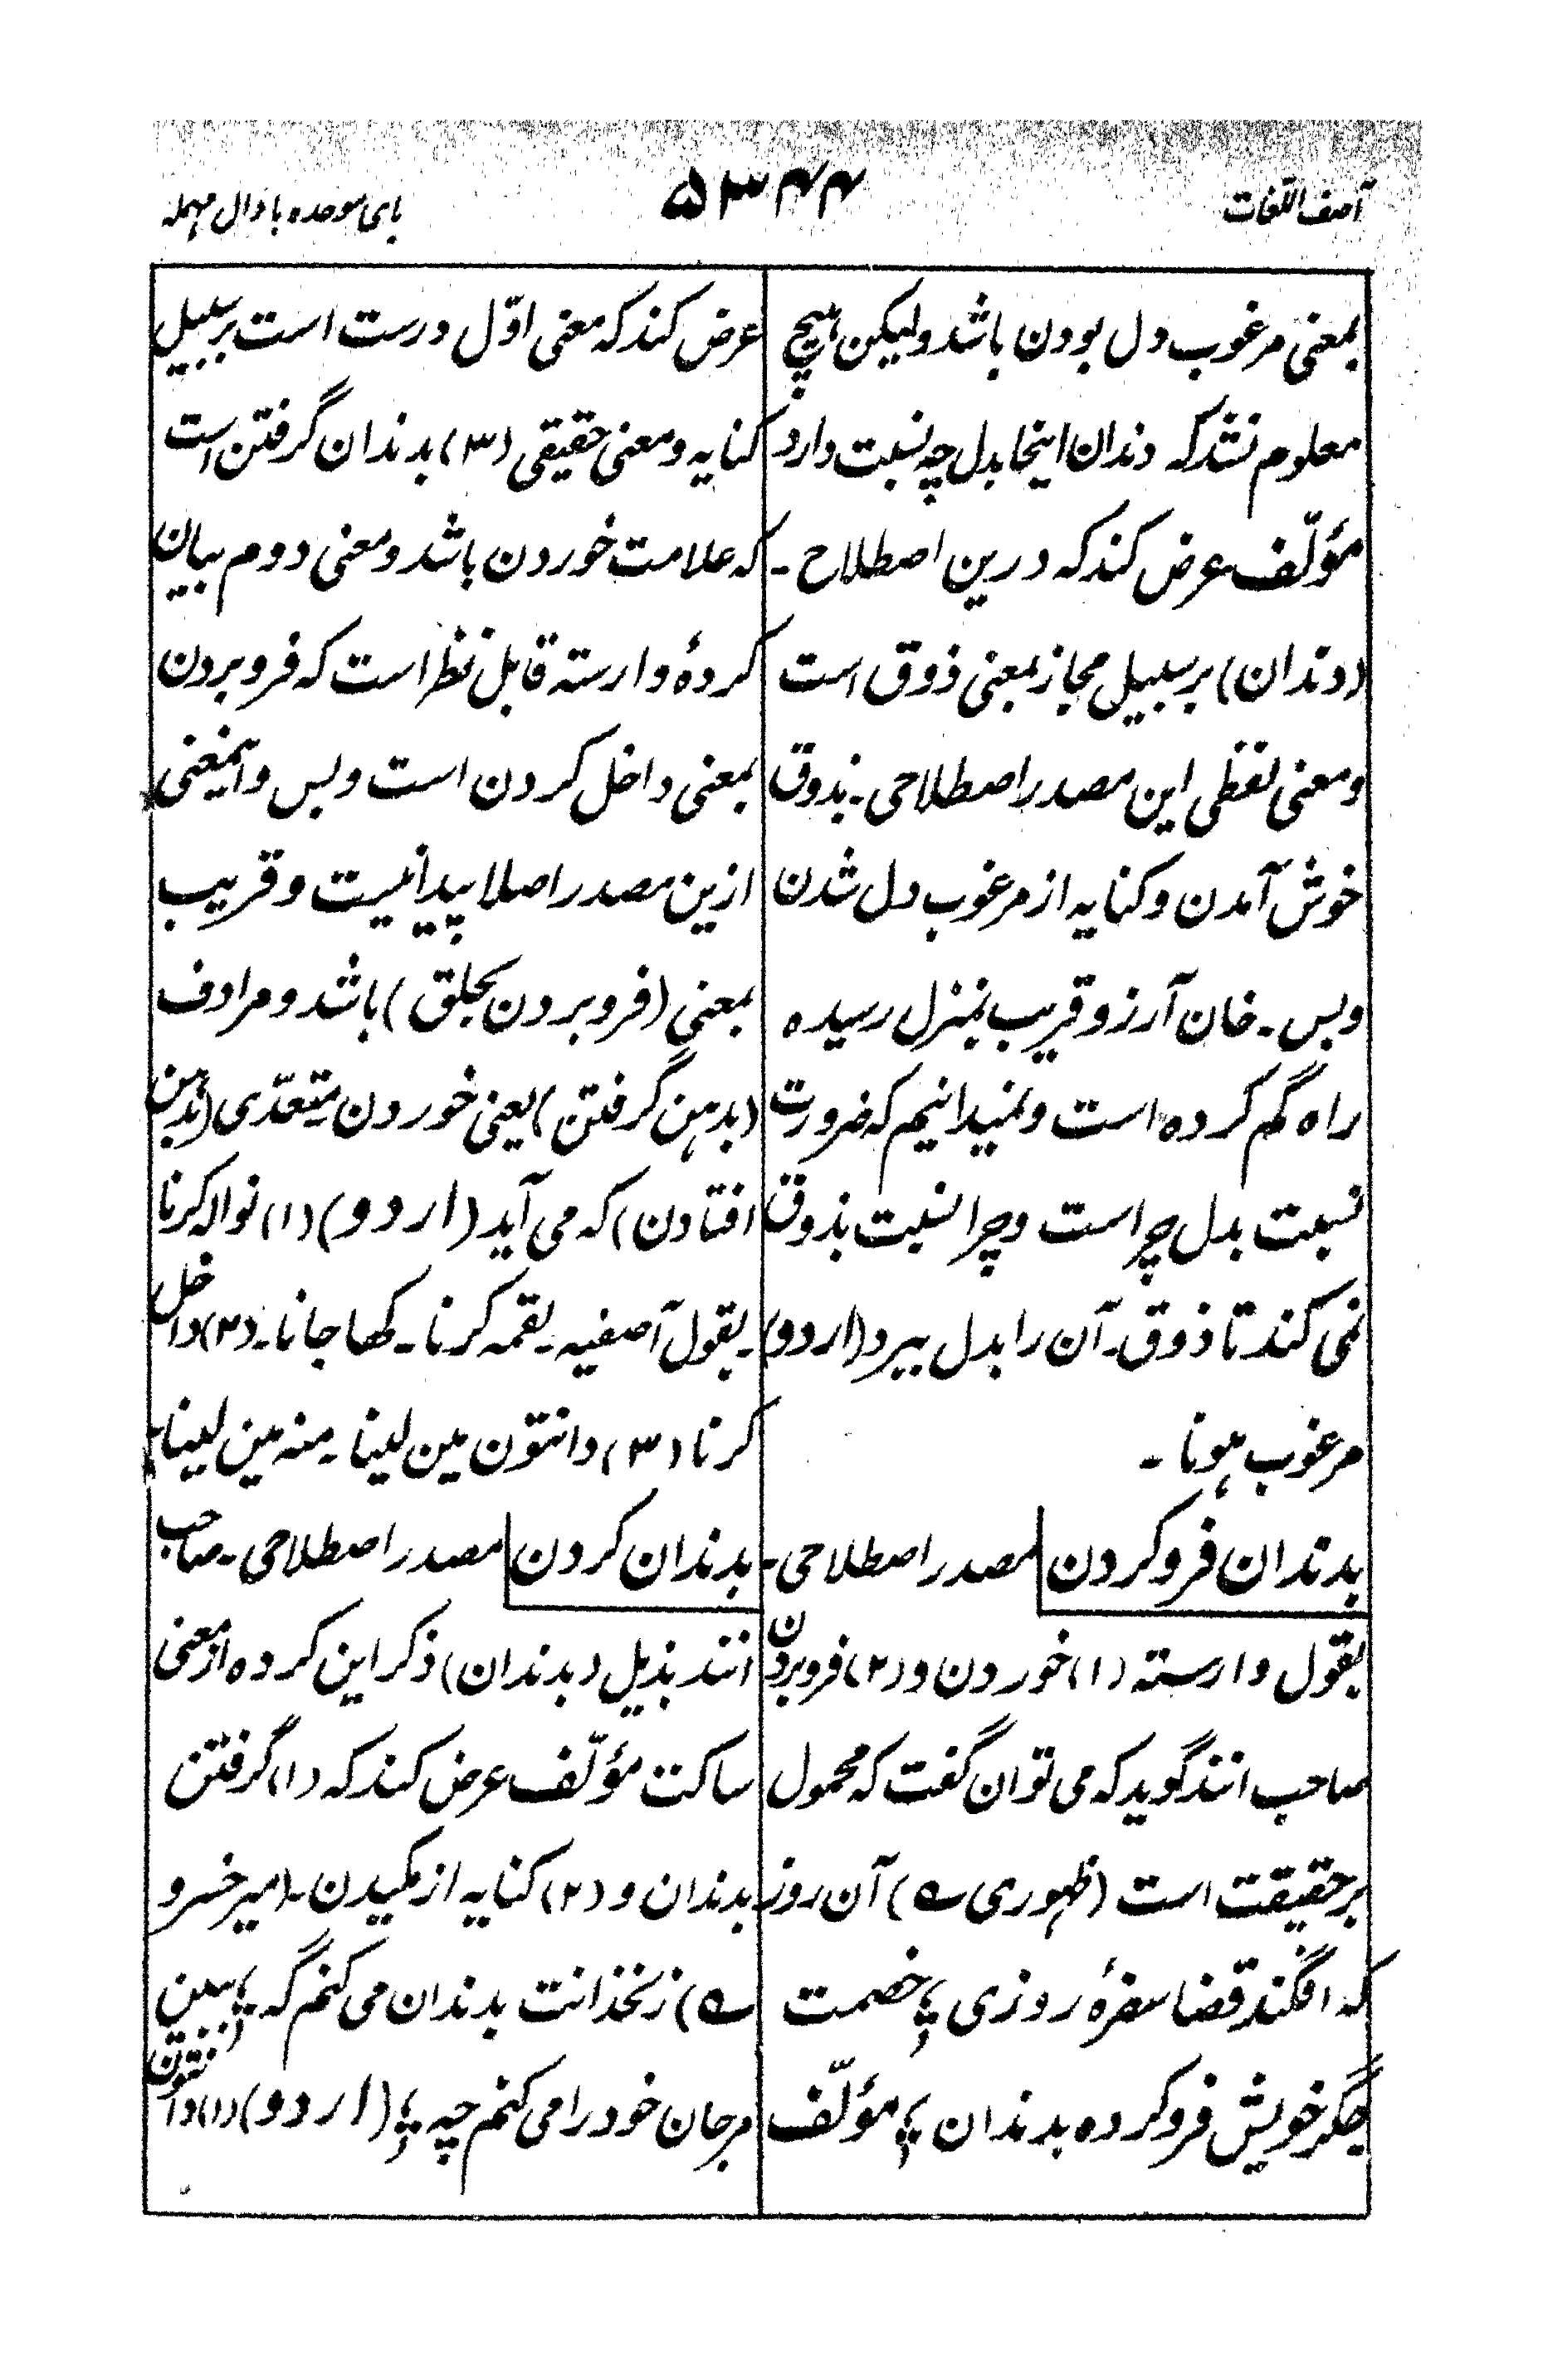 آصف اللغات
۵۳۴۴
بای موحده با دال مهمله
بمعنی مرغوب دل بودن باشد ولیکن هیچ
معلوم نشد که دندان اینجا بدل چه نسبت دارد
مؤلّف عرض کند که درین اصطلاح ـ
(دندان) بر سبیل مجاز بمعنی ذوق است
و معنی لفظی این مصدر اصطلاحی ـ بذوق
خوش آمدن و کنایه از مرغوب دل شدن
و بس ـ خان آرزو قریب بمنزل رسیده
راه گم کرده است و نمیدانیم که ضرورت
نسبت بدل چراست و چرا نسبت بذوق
نمی کند تا ذوق ـ آن را بدل ببرد (اردو)
مرغوب ہونا ـ
بدندان فرو کردن مصدر اصطلاحی ـ
بقول وارسته (۱) خوردن و (۲) فرو بردن
صاحب انند گوید که می توان گفت که محمول
بر حقیقت است (ظهوری ؎) آن روز
که افگند قضا سفرهٔ روزی ؛ خصمت
جگر خویش فرو کرده بدندان ؛ مؤلّف
عرض کند که معنی اوّل درست است بر سبیل
کنایه و معنی حقیقی (۳) بدندان گرفتن است
که علامت خوردن باشد و معنی دوم بیان
کردهٔ وارسته قابل نظر است که فرو بردن
بمعنی داخل کردن است و بس و اینمعنی
ازین مصدر اصلا پیدا نیست و قریب
بمعنی (فرو بردن بحلق) باشد و مرادف
(بدهن گرفتن) یعنی خوردن متعدّی (بدهن
افتادن) که می آید (اردو) (۱) نوالہ کرنا
ـ بقول آصفیہ ـ لقمہ کرنا ـ کھا جانا ـ (۲) داخل
کرنا (۳) دانتون مین لینا ـ منہ مین لینا ـ
بدندان کردن مصدر اصطلاحی ـ صاحب
انند بذیل (بدندان) ذکر این کرده از معنی
ساکت مؤلّف عرض کند که (۱) گرفتن
بدندان و (۲) کنایه از مکیدن ـ (امیر خسرو
؎) زنخدانت بدندان می کنم گه ؛ ببین
مرجان خود را می کنم چه ؛ (اردو) (۱) دانتون